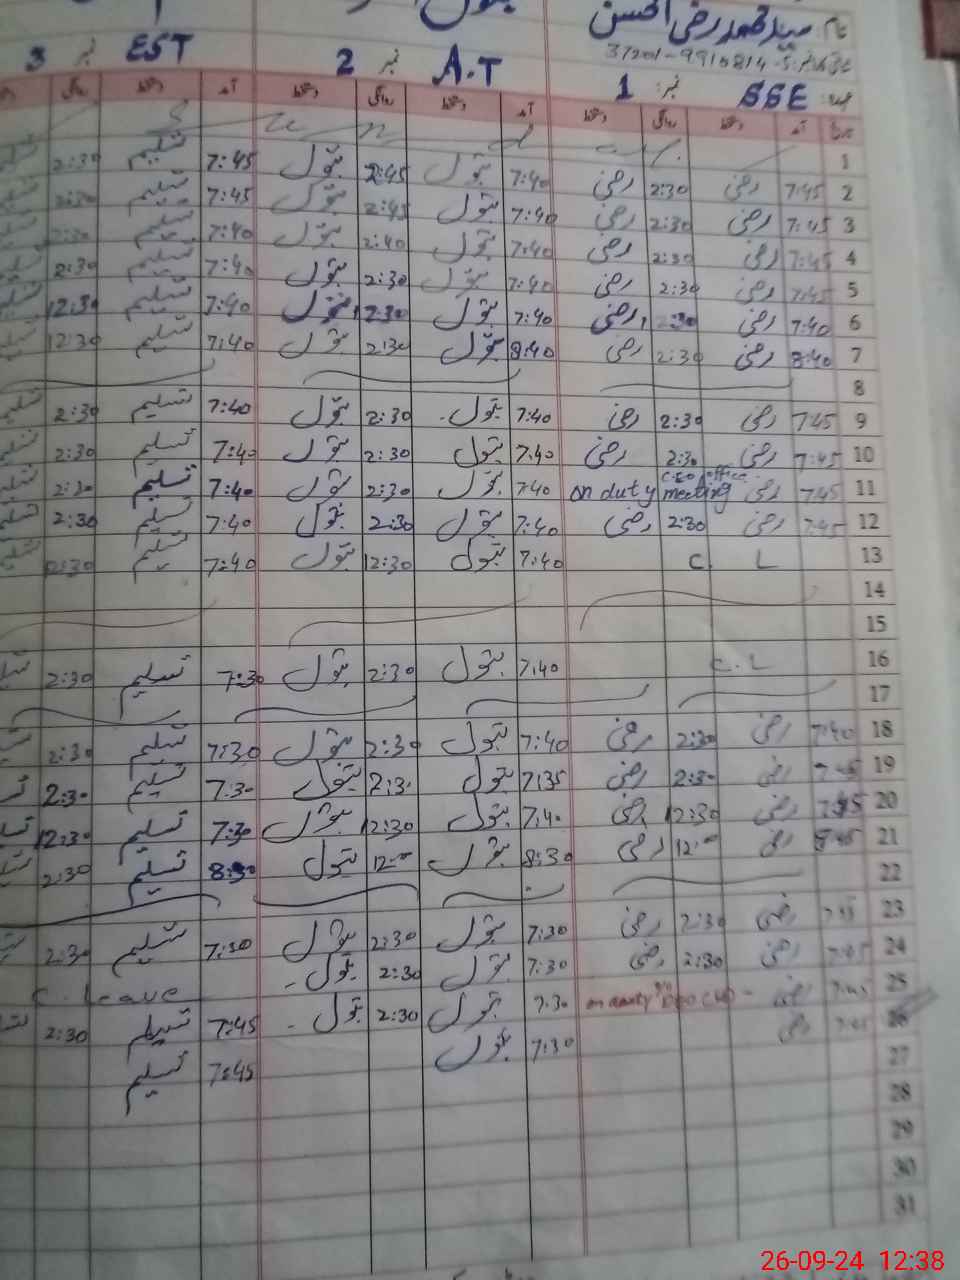 نام: سید محمد رضی الحسن
37201-9910814-5
SSE نمبر: 1 A.T نمبر 2 EST نمبر 3
تاریخ آمد دستخط روانگی دستخط آمد دستخط روانگی دستخط آمد دستخط روانگی
1 S u n d
2 7:45 رضی 2:30 رضی 7:40 بتول 2:45 بتول 7:45 تسلیم 2:30
3 7:45 رضی 2:30 رضی 7:40 بتول 2:45 بتول 7:45 تسلیم 2:30
4 7:45 رضی 2:30 رضی 7:40 بتول 2:40 بتول 7:40 تسلیم 2:30
5 7:45 رضی 2:30 رضی 7:40 بتول 2:30 بتول 7:40 تسلیم 2:30
6 7:40 رضی 2:30 رضی 7:40 بتول 12:30 بتول 7:40 تسلیم 12:30
7 8:40 رضی 2:30 رضی 8:40 بتول 2:30 بتول 7:40 تسلیم 12:30
8
9 7:45 رضی 2:30 رضی 7:40 بتول 2:30 بتول 7:40 تسلیم 2:30
10 7:45 رضی 2:30 رضی 7:40 بتول 2:30 بتول 7:40 تسلیم 2:30
11 7:45 رضی on duty CEO office meeting 7:40 بتول 2:30 بتول 7:40 تسلیم 2:30
12 7:45 رضی 2:30 رضی 7:40 بتول 2:30 بتول 7:40 تسلیم 2:30
13 C L 7:40 بتول 12:30 بتول 7:40 تسلیم 12:30
14
15
16 C.L 7:40 بتول 2:30 بتول 7:30 تسلیم 2:30
17
18 7:40 رضی 2:30 رضی 7:40 بتول 2:30 بتول 7:30 تسلیم 2:30
19 7:45 رضی 2:30 رضی 7:35 بتول 2:30 بتول 7:30 تسلیم 2:30
20 7:45 رضی 12:30 رضی 7:40 بتول 12:30 بتول 7:30 تسلیم 12:30
21 8:45 رضی 12:00 رضی 8:30 بتول 12:00 بتول 8:30 تسلیم 2:30
22
23 7:45 رضی 2:30 رضی 7:30 بتول 2:30 بتول 7:30 تسلیم 2:30
24 7:45 رضی 2:30 رضی 7:30 بتول 2:30 بتول C. Leave
25 7:45 رضی on duty 7:30 بتول 2:30 بتول 7:45 تسلیم 2:30
26 7:45 رضی 7:30 بتول 7:45 تسلیم
27
28
29
30
31
26-09-24 12:38